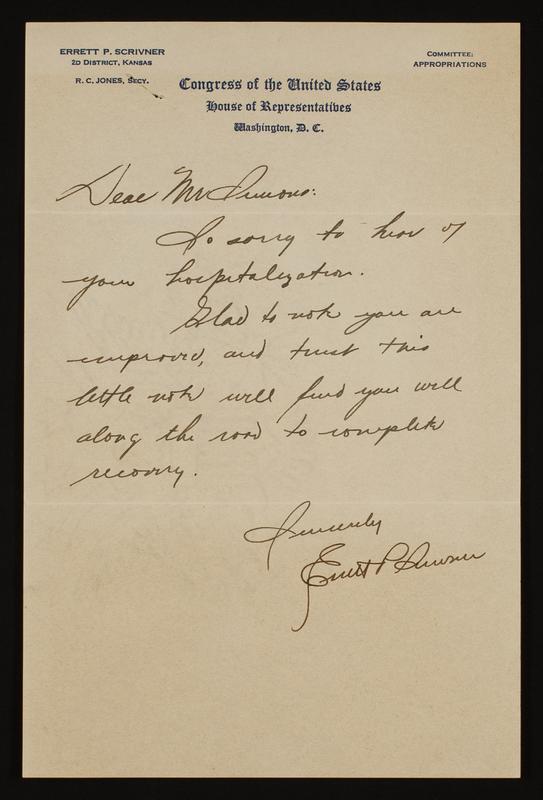 ERRETT P. SCRIVNER
2D DISTRICT, KANSAS
R. C. JONES, SECY.
COMMITTEE:
APPROPRIATIONS
Congress of the United States
House of Representatives
Washington, D. C.
Dear Mr Simons:
So sorry to hear of
your hospitalization.
Glad to note you are
improved, and trust this
little note will find you well
along the road to complete
recovery.
Sincerely
Errett P. Scrivner